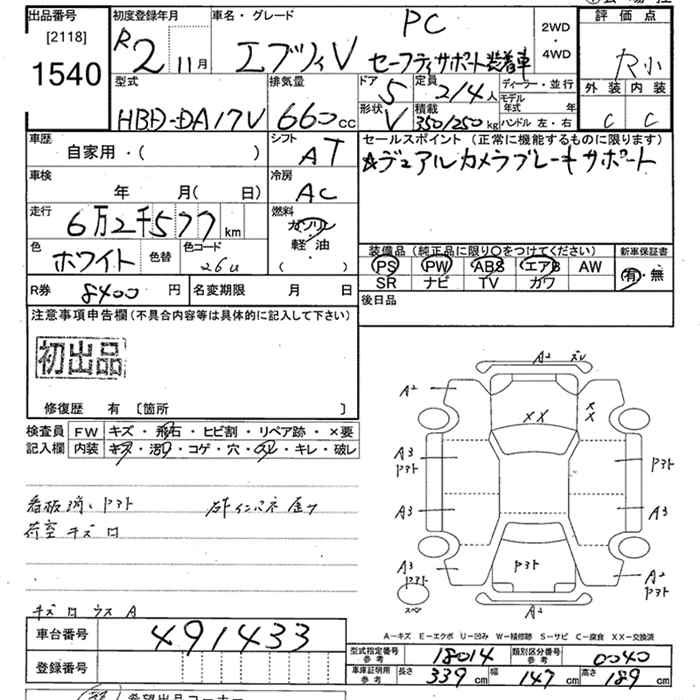 出品番号 初度登録年月 車名・グレード PC 2WD・4WD 評価点
[2118] R2 11月 エブリィV セーフティサポート装着車 R小
1540
型式 排気量 ドア 5 定員 2/4人 ディーラー・並行 外装 内装
HBD-DA17V 660cc 形状 V 積載 350/250kg モデル年式 年 ハンドル 左・右 C C
車歴 シフト セールスポイント(正常に機能するものに限ります)
自家用・( ) AT ☆デュアルカメラブレーキサポート
車検 冷房
年 月( 日) AC
走行 6万2千577km 燃料 ガソリン 軽・油 ( )
色 ホワイト 色替 色コード 26U
装備品(純正品に限り〇をつけてください) 新車保証書
PS PW ABS エアB AW 有・無
SR ナビ TV カワ
R券 8400円 名変期限 月 日 後日品
注意事項申告欄(不具合内容等は具体的に記入して下さい)
初出品
修復歴 有 〔箇所 〕
検査員 FW キズ・飛石・ヒビ割・リペア跡・×要
記入欄 内装 キズ・汚れ・コゲ・穴・スレ・キレ・破レ
看板消し
荷室キズ
A2
A2 XX
A3
A3 A3
A3 A2
スペア A2
A-キズ E-エクボ U-凹み W-補修跡 S-サビ C-腐食 XX-交換済
車台番号 491433
登録番号
型式指定番号 参考 18014 類別区分番号 参考 0040
車庫証明用 参考 長さ 339cm 幅 147cm 高さ 189cm
希望出品コーナー